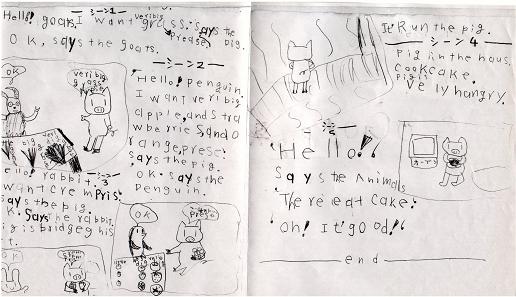 シーン1
Hello! goats, I want veribig grass. says the pig.
prease
OK, says the goats.
OK
veribig
シーン2
Hello! Penguin
I want veri big
apple, and stra
wberrie Sand O
range, prese!
says the pig.
OK. says the
Penguin.
3
hello! rabbit. I
want crem pris!
says the pig.
OK. Says the rabbit.
pig is bridge g his
OK
It Run the pig.
シーン4
Pig in the haus.
Cook cake.
Pig is
Velly hungry.
Hello!!
Says the Animals
The re eat cake!
Oh! It' good!!
end